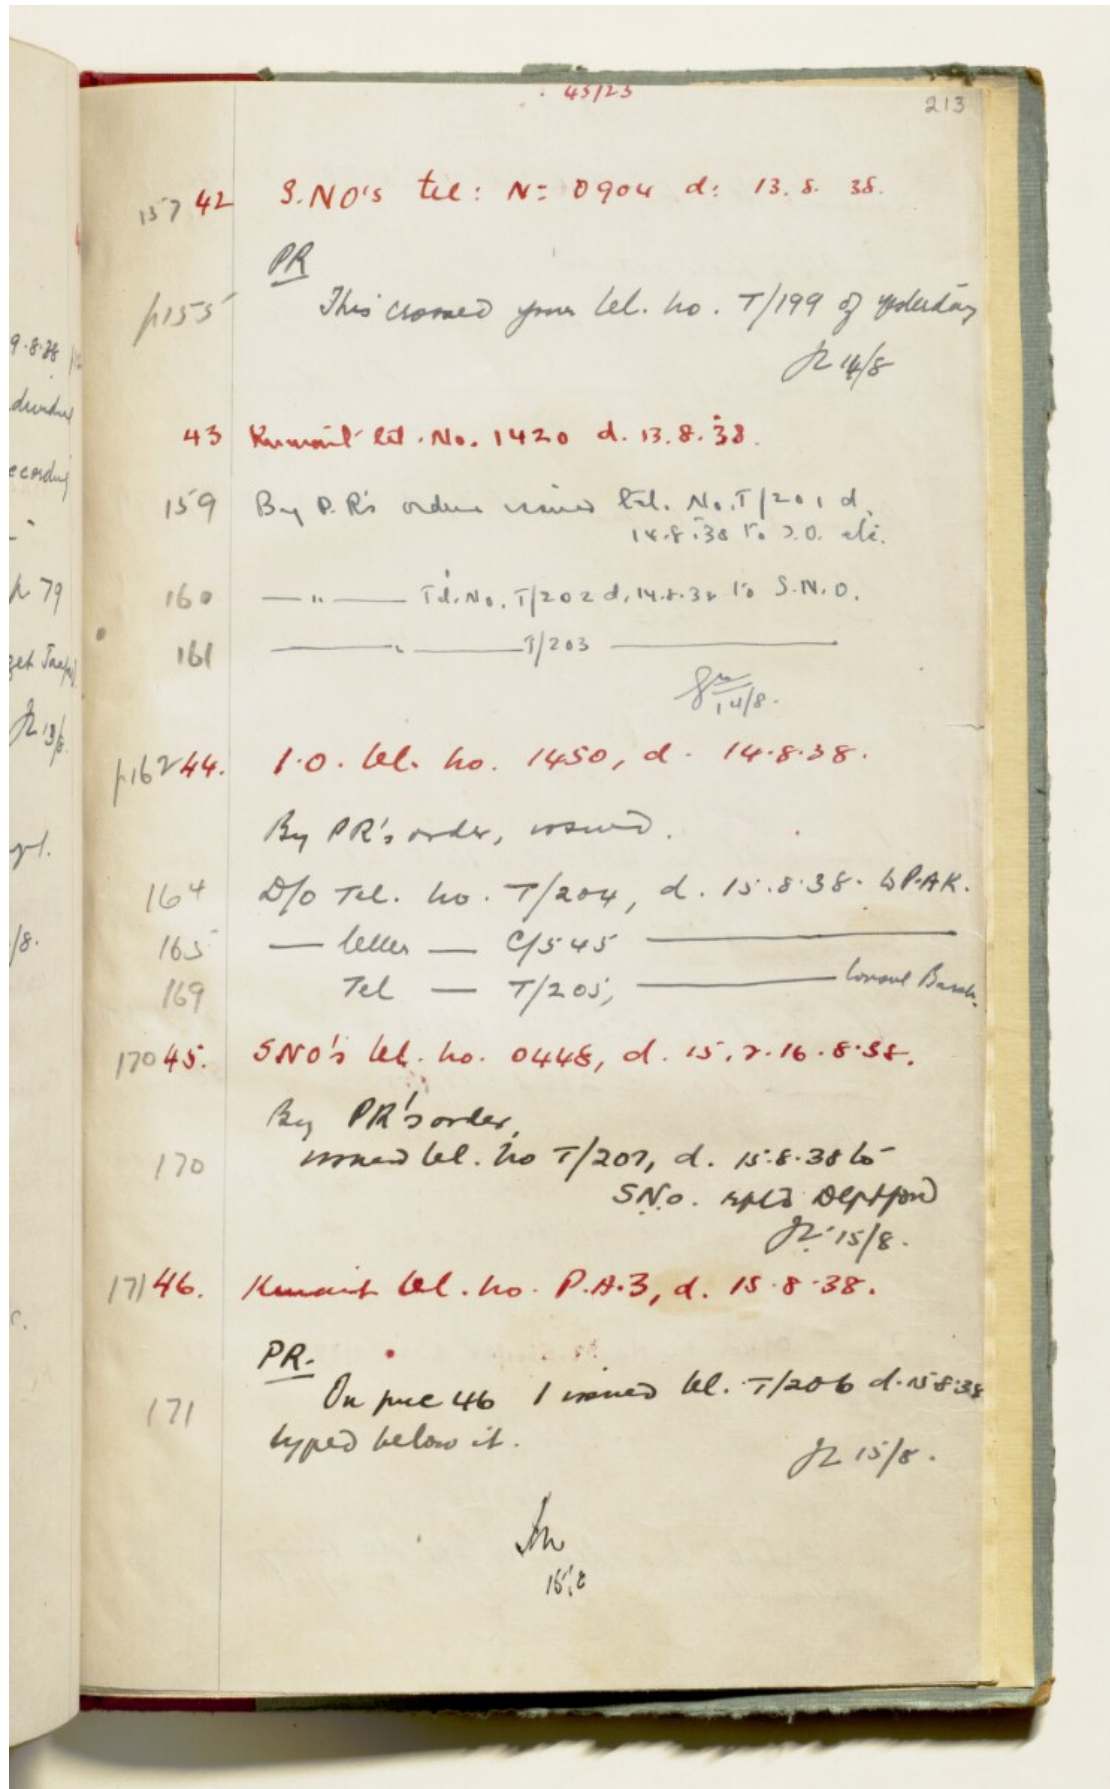 45/23
213
157 42 S.NO's tel: No 0904 d: 13.8.38.
PR
p155 This crossed your tel. no. T/199 of yesterday
14/8
43 Kuwait tel. No. 1420 d. 13.8.38.
159 By P.R's orders issued tel. No. T/201 d.
14.8.38 to I.O. etc.
160 — " — Tel. No. T/202 d. 14.8.38 to S.N.O.
161 — " — T/203 —
14/8.
p162 44. I.O. tel. no. 1450, d. 14.8.38.
By PR's order, issued.
164 D/O Tel. no. T/204, d. 15.8.38. to P.A.K.
165 — letter — C/545 —
169 Tel — T/205, — Consul Basrah.
170 45. SNO's tel. no. 0448, d. 15.8.38.
By PR's order,
170 issued tel. no T/207, d. 15.8.38 to
S.N.O. rptd Deptford
15/8.
171 46. Kuwait tel. no. P.A.3, d. 15.8.38.
PR.
171 On puc 46 I issued tel. T/206 d. 15.8.38
typed below it.
15/8.
15/8
9.8.38
p 79
13/8.
/8.